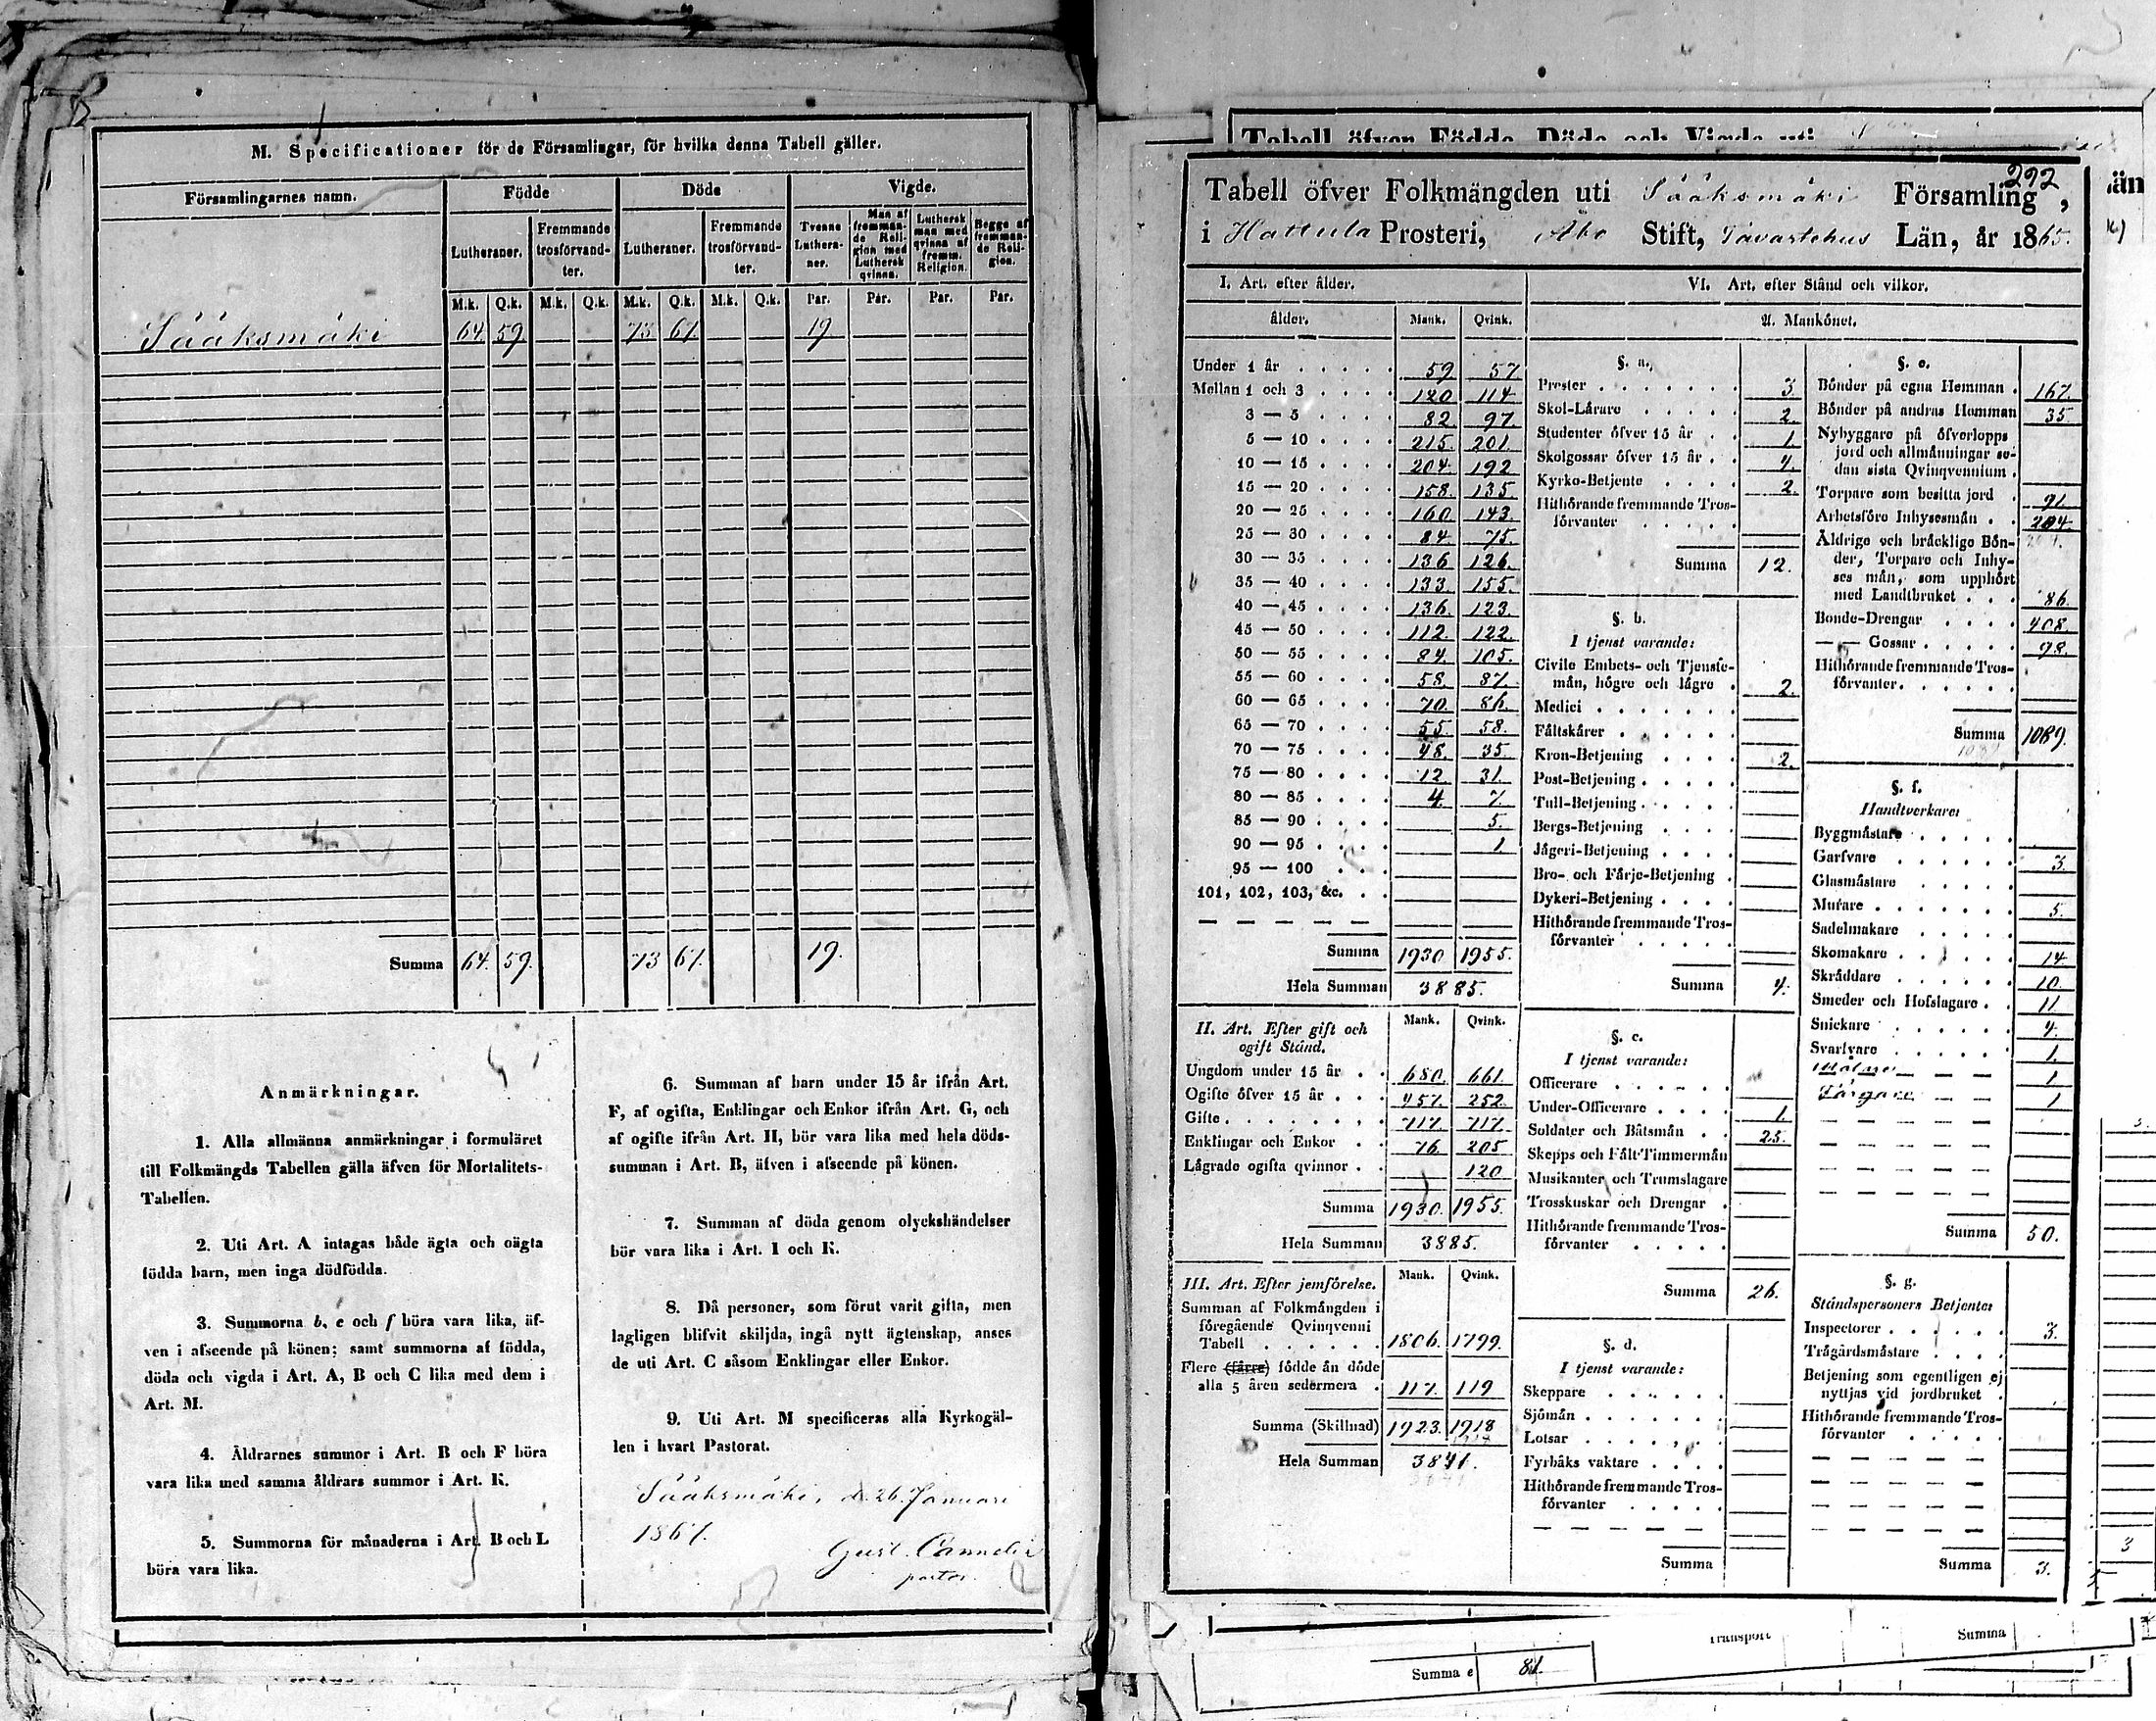 M. Specificationer för de Församlingar, för hvilka denna Tabell gäller.
Församlingarnes namn. Födde Döde Vigde.
Lutheraner. Fremmande trosförvandter. Lutheraner. Fremmande trosförvandter. Tvenne Lutheraner. Man af fremmande Religion med Luthersk qvinna. Luthersk man med qvinna af fremm. Religion. Begge af fremmande Religion.
M.k. Q.k. M.k. Q.k. M.k. Q.k. M.k. Q.k. Par. Par. Par. Par.
Sääksmäki 64 59. 73 67. 19.
Summa 64. 59. 73 67. 19.
Anmärkningar.
1. Alla allmänna anmärkningar i formuläret
till Folkmängds Tabellen gälla äfven för Mortalitets-
Tabellen.
2. Uti Art. A intagas både ägta och oägta
födda barn, men inga dödfödda.
3. Summorna b, e och f böra vara lika, äf-
ven i afseende på könen; samt summorna af födda,
döda och vigda i Art. A, B och C lika med dem i
Art. M.
4. Åldrarnes summor i Art. B och F böra
vara lika med samma åldrars summor i Art. K.
5. Summorna för månaderna i Art. B och L
böra vara lika.
6. Summan af barn under 15 år ifrån Art.
F, af ogifta, Enklingar och Enkor ifrån Art. G, och
af ogifte ifrån Art. H, bör vara lika med hela döds-
summan i Art. B, äfven i afseende på könen.
7. Summan af döda genom olyckshändelser
bör vara lika i Art. I och K.
8. Då personer, som förut varit gifta, men
lagligen blifvit skiljda, ingå nytt ägtenskap, anses
de uti Art. C såsom Enklingar eller Enkor.
9. Uti Art. M specificeras alla Kyrkogäl-
len i hvart Pastorat.
Sääksmäki, d. 26. Januari
1867.
Gust. Cannelin
pastor.
Tabell öfver Födde, Döde och Vigde uti
292
Tabell öfver Folkmängden uti Sääksmäki Församling,
i Hattula Prosteri, Åbo Stift, Tavastehus Län, år 1865.
I. Art. efter ålder.
ålder. Mank. Qvink.
Under 1 år 59 57
Mellan 1 och 3 120 114
3 — 5 82 97.
5 — 10 215. 201.
10 — 15 204. 192
15 — 20 158. 135.
20 — 25 160 143.
25 — 30 84. 75.
30 — 35 136 126.
35 — 40 133. 155.
40 — 45 136. 123.
45 — 50 112. 122.
50 — 55 84. 105.
55 — 60 58. 87.
60 — 65 70. 86.
65 — 70 55. 58.
70 — 75 48. 35.
75 — 80 12. 31.
80 — 85 4. 7.
85 — 90 5.
90 — 95 1.
95 — 100
101, 102, 103, &c.
Summa 1930 1955.
Hela Summan 3885.
II. Art. Efter gift och
ogift Stånd. Mank. Qvink.
Ungdom under 15 år 680. 661.
Ogifte öfver 15 år 457. 252.
Gifte 717. 717.
Enklingar och Enkor 76. 205
Lägrade ogifta qvinnor 120
Summa 1930. 1955.
Hela Summan 3885.
III. Art. Efter jemförelse. Mank. Qvink.
Summan af Folkmängden i
föregående Qvinqvenni
Tabell 1806. 1799.
Flere (färre) födde än döde
alla 5 åren sedermera 117. 119
Summa (Skillnad) 1923. 1918
Hela Summan 3841.
VI. Art. efter Stånd och vilkor.
A. Mankönet.
§. a.
Prester 3.
Skol-Lärare 2.
Studenter öfver 15 år 1.
Skolgossar öfver 15 år 4.
Kyrko-Betjente 2.
Hithörande fremmande Tros-
förvanter
Summa 12.
§. b.
I tjenst varande:
Civile Embets- och Tjenste-
män, högre och lägre 2.
Medici
Fältskärer
Kron-Betjening 2.
Post-Betjening
Tull-Betjening
Bergs-Betjening
Jägeri-Betjening
Bro- och Färje-Betjening
Dykeri-Betjening
Hithörande fremmande Tros-
förvanter
Summa 4.
§. c.
I tjenst varande:
Officerare
Under-Officerare 1.
Soldater och Båtsmän 25.
Skepps och Fält-Timmermän
Musikanter och Trumslagare
Trosskuskar och Drengar
Hithörande fremmande Tros-
förvanter
Summa 26.
§. d.
I tjenst varande:
Skeppare
Sjömän
Lotsar
Fyrbåks vaktare
Hithörande fremmande Tros-
förvanter
Summa
§. e.
Bönder på egna Hemman 167.
Bönder på andras Hemman 35.
Nybyggare på öfverlopps
jord och allmänningar se-
dan sista Qvinqvennium
Torpare som besitta jord 91.
Arbetsföre Inhysesmän 204.
Åldrige och bräcklige Bön-
der, Torpare och Inhy-
ses män, som upphört
med Landtbruket 86.
Bonde-Drengar 408.
— — Gossar 98.
Hithörande fremmande Tros-
förvanter
Summa 1089.
§. f.
Handtverkare:
Byggmästare
Garfvare 3.
Glasmästare
Murare 5.
Sadelmakare
Skomakare 14.
Skräddare 10.
Smeder och Hofslagare 11
Snickare 4.
Svarfvare 1.
Målare 1
Färgare 1
Summa 50.
§. g.
Ståndspersoners Betjente:
Inspectorer 3.
Trägårdsmästare
Betjening som egentligen ej
nyttjas vid jordbruket
Hithörande fremmande Tros-
förvanter
Summa 3.
Transport Summa
Summa e 81.